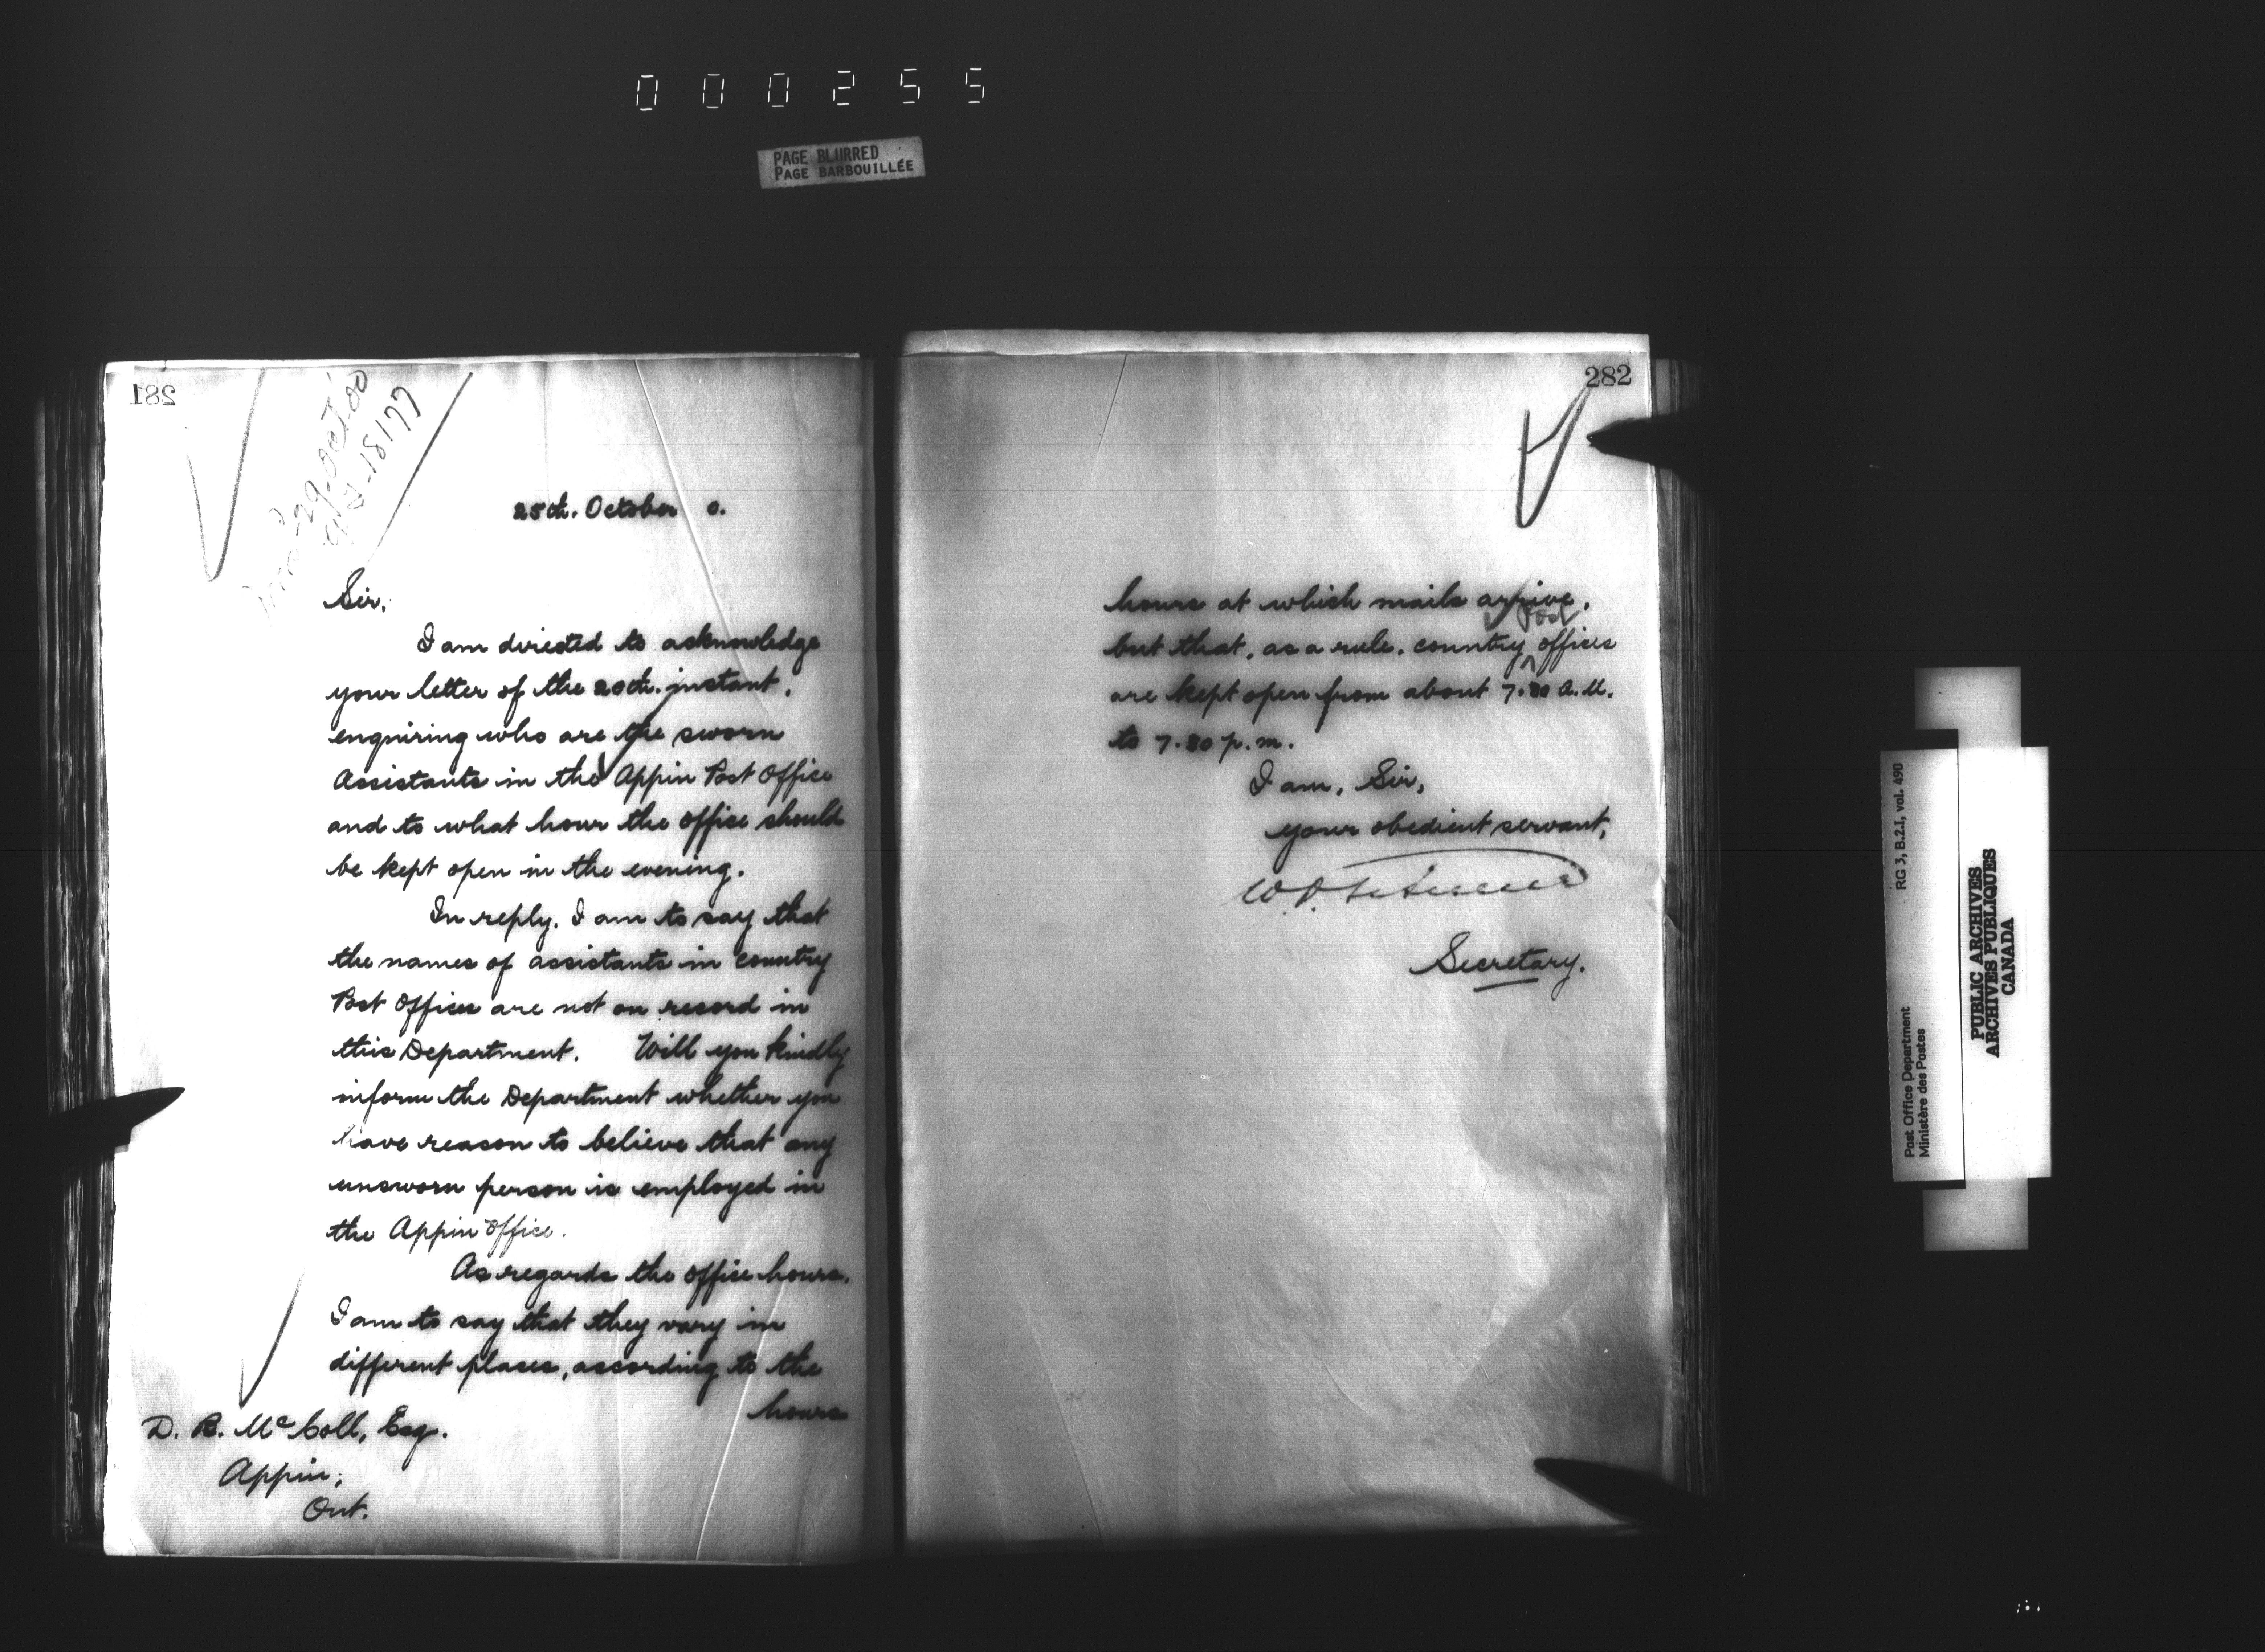 000255
PAGE BLURRED
PAGE BARBOUILLÉE
281
29 Oct '00
18177
25th. October 0.
Sir,
I am directed to acknowledge
your letter of the 20th. instant,
enquiring who are the sworn
Assistants in the Appin Post Office
and to what hour the office should
be kept open in the evening.
In reply, I am to say that
the names of assistants in country
Post Offices are not on record in
this Department. Will you kindly
inform the Department whether you
have reason to believe that any
unsworn person is employed in
the Appin Office.
As regards the office hours,
I am to say that they vary in
different places, according to the
hours
D. B. McColl, Esq.
Appin,
Ont.
282
hours at which mails arrive,
Post
but that, as a rule, country offices
are kept open from about 7.30 A.M.
to 7.30 p.m.
I am, Sir,
your obedient servant,
Secretary.
Post Office Department
Ministère des Postes
RG 3, B.2.I, vol. 490
PUBLIC ARCHIVES
ARCHIVES PUBLIQUES
CANADA